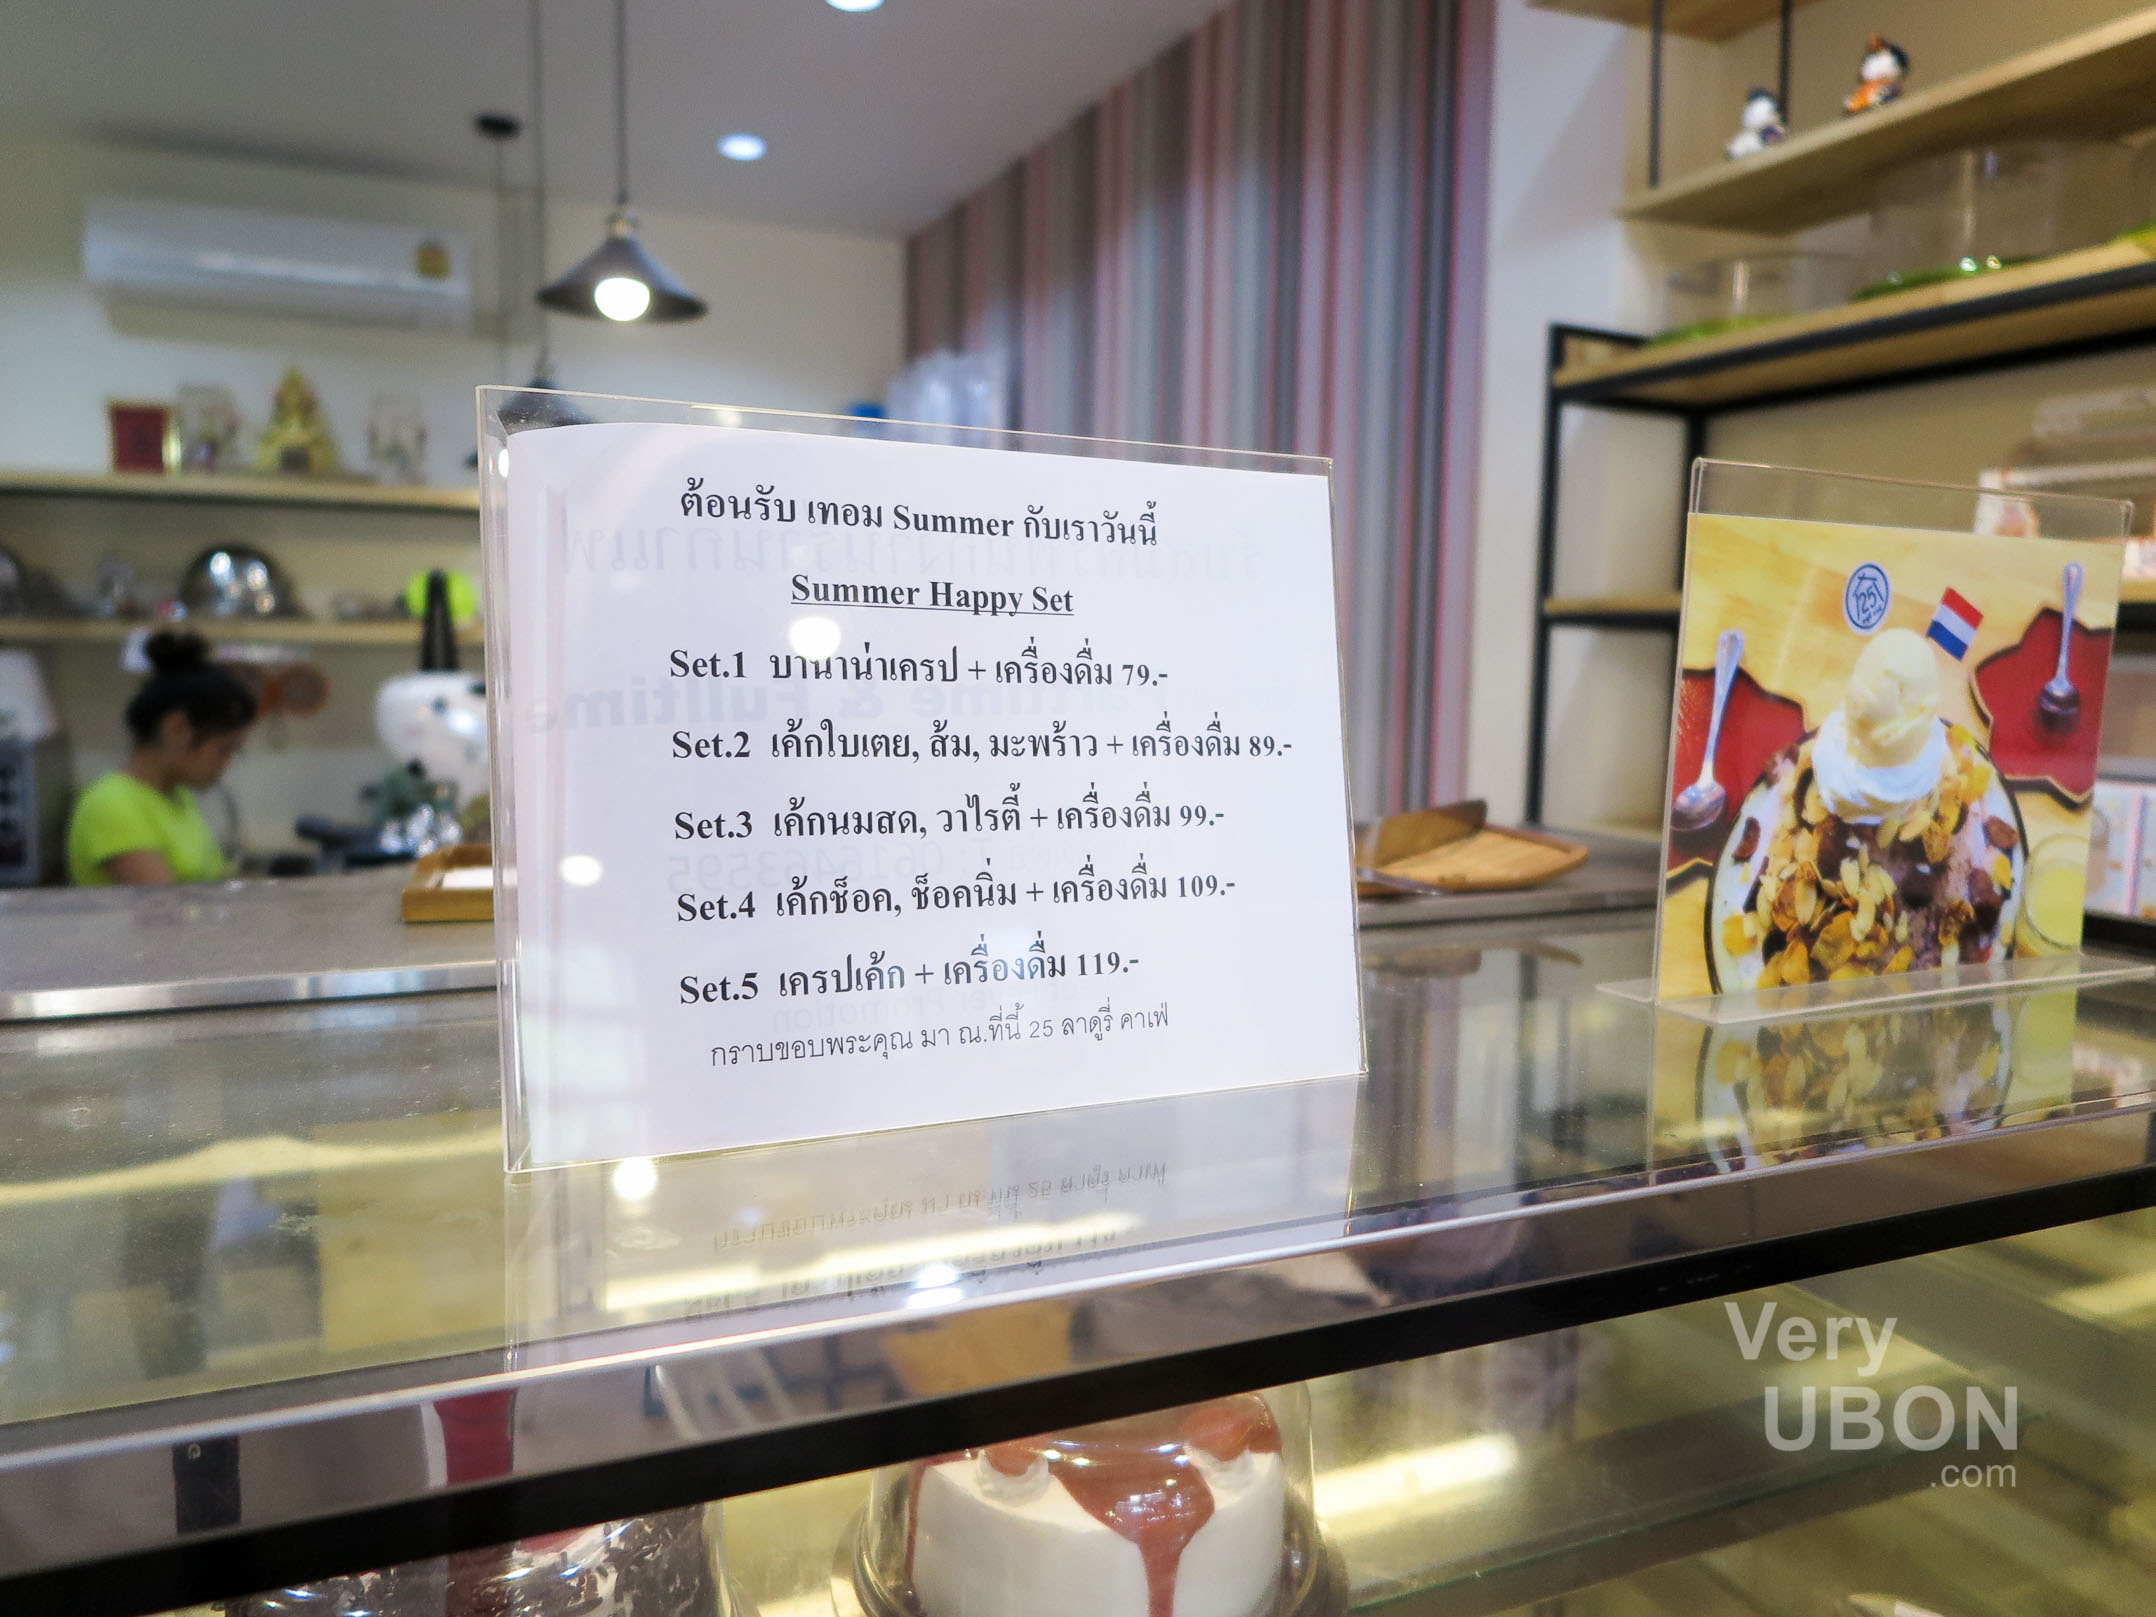 ต้อนรับ เทอม Summer กับเราวันนี้
Summer Happy Set
Set.1 บานาน่าเครป + เครื่องดื่ม 79.-
Set.2 เค้กใบเตย, ส้ม, มะพร้าว + เครื่องดื่ม 89.-
Set.3 เค้กนมสด, วาไรตี้ + เครื่องดื่ม 99.-
Set.4 เค้กช็อค, ช็อคนิ่ม + เครื่องดื่ม 109.-
Set.5 เครปเค้ก + เครื่องดื่ม 119.-
กราบขอบพระคุณ มา ณ.ที่นี้ 25 ลาดูรี่ คาเฟ่
25
Very
UBON
.com